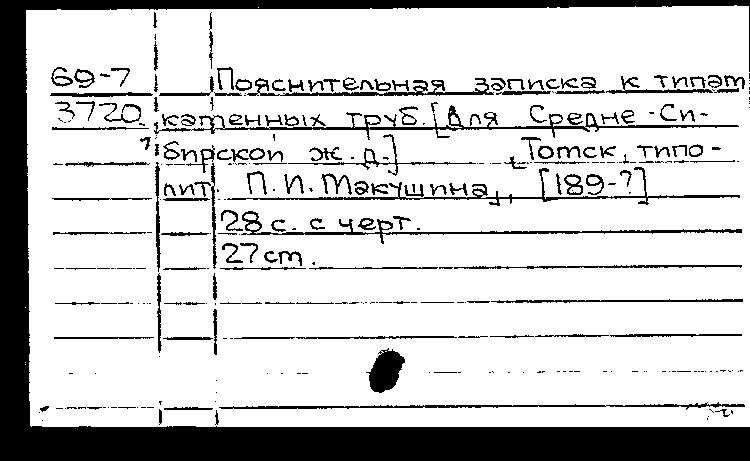 69-7 Пояснительная записка к типам
3720 каменных труб. [Для Средне-Си-
бирской ж.д.] Томск, типо-
лит. П.И.Макушина, [189-?]
28 с. с черт.
27 см.